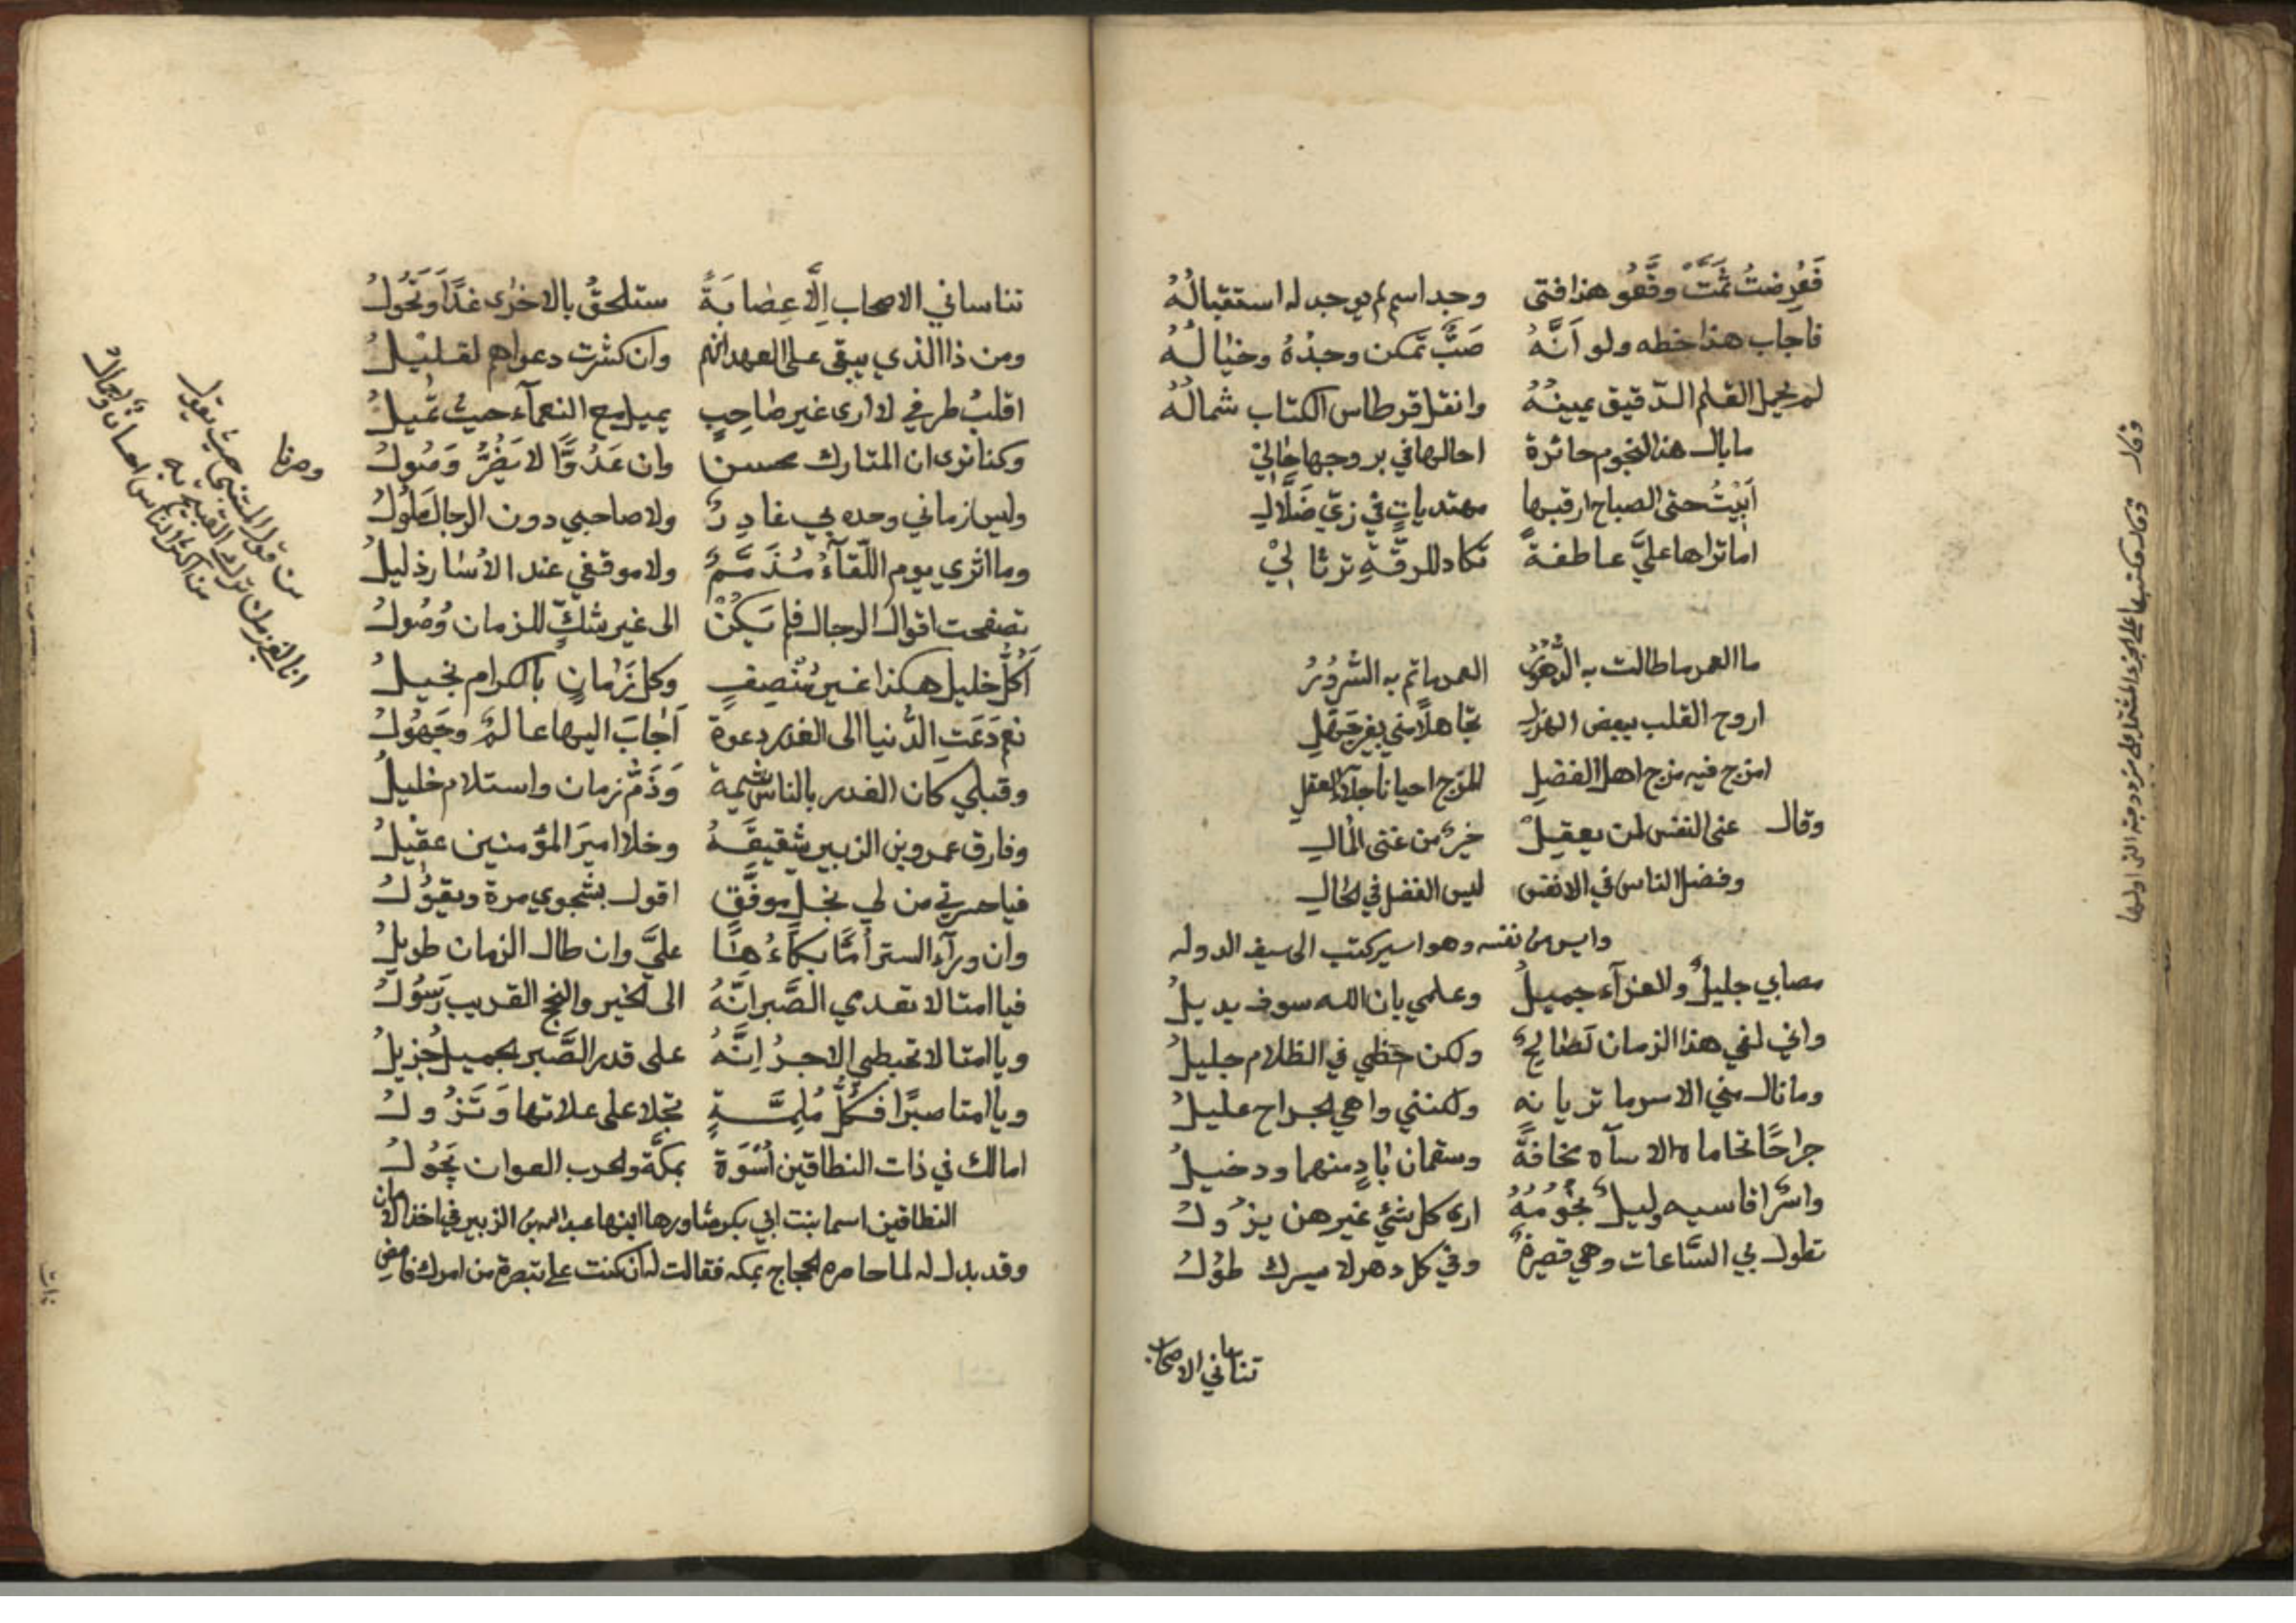 فَعُرِضتُ ثَمَّتَ وقَّعُو هذا فتى وجد اسم لم يوجد له استقبالُهُ
فاجاب هذا خطه ولو اَنَّهُ صَبٌّ تمكن وجدُهُ وخيالُهُ
لم يحمل القلم الدّقيق يمينُهُ وانقل قرطاس الكتاب شمالُهُ
ما بال هذا النجوم حائرة احالها في بروجها حالي
اَبيْتُ حتى الصباح ارقبها مهتدياتٍ في زيّ ضَلَّالِ
اما تراها عليَّ عاطفةً تكاد للرقّةِ ترثا لِيْ
ما العمر ما طالت به الدُّهورُ العمر ما تم به السُّرُوْرُ
اروح القلب ببعض الهزلِ تجاهلًا مني بغير جَهَلِ
امزح فيه مزح اهل الفضلِ المزح احيانا جلآء العقلِ
وقال غنى النفس لمن يعقِلْ خيرٌ من غنى المالِ
وفضل الناس في الانفس ليس الفضل في الحالِ
وايس من نفسه وهو اسير كتب الى سيف الدوله
مصابي جليلٌ ولا عزآء جميلُ وعلمي بان الله سوف يديلُ
واني لفي هذا الزمان لصالحٌ ولكن خطبي في الظلام جليلُ
وما نال مني الاسر ما تريانه ولكنني واهي الجراح عليلُ
جراحًا تحاماه الاساه مخافةً وسقمان بادٍ منهما ودخيلُ
واسرٌ اقاسيه وليلٌ نجُومُهُ ارى كل شئي غيرهن يزُولُ
تطول بي السَّاعات وهي قصيرةٌ وفي كل دهر لا يسرك طوُلُ
تناساني الاصحاب
وقال
وقال وكتبها على الجزء المشتمل على مزدوجته التى اولها
تناساني الاصحاب اِلَّا عِصابَةً ستلحقُ بالاخرى غدًا وَتَحُولُ
ومن ذا الذي يبقى على العهد انهم وان كثرت دعواهم لقليْلُ
اقلبُ طرفي لا ارى غير صاحِبٍ يميل مع النعمآء حيث تميلُ
وكنا نرى ان المتارك محسن وان عَدُوًّا لا يَضُرُّ وَصُولُ
وليس زماني وحده بي غادِرٌ ولا صاحبي دون الرجال مَلُولُ
وما اثري يوم اللّقآءُ مُذَمَّمٌ ولا موقفي عند الأسار ذليلُ
تصفحت اقوال الرجال فلم يَكُنْ الى غير شكٍّ للزمان وُصُولُ
اَكُلُّ خليل هكذا غير مُنْصِفٍ وكل زَمانٍ بالكرام بخيلُ
نعم دَعَتِ الدُّنيا الى الغدر دعوة اَجابَ اليها عالمٌ وجَهُولُ
وقبلي كان الغدر بالناس شيمة وَذَمّ زمان واستلام خليلُ
وفارق عمرو بن الزبير شقيقَهُ وخلا اميرَ المؤمنين عقيْلُ
فيا حسرتي من لي بخل موفَّقٍ اقول بشجوي مرة ويقوُلُ
وان ورآء الستر أُمًّا بكآءُ هَا عليَّ وان طال الزمان طويلُ
فيا امتا لا تعدمي الصَّبر اِنَّهُ الى الخير والنجح القريب رَسُوْلُ
ويا امتا لا تحبطي الاجرُ اِنَّهُ على قدر الصَّبر الجميل جزيلُ
ويا امتا صبرًا فكُلُّ مُلِمَّةٍ تجلا على علاتها وَتَزُولُ
امالك في ذات النطاقين أُسْوَة بمكّة والحرب العوان تَجُولُ
النطاقين اسما بنت ابي بكر شاورها ابنها عبد الله بن الزبير في اخذ الامان
وقد بدل له لما حاصره الحجاج بمكه فقالت له ان كنت على تبصرة من امرك فامضِ
وصرنا
من قول المتنبي حيث يقول
انا لفي زمن ترك القبيح به
من اكثر الناس احسان واجمال